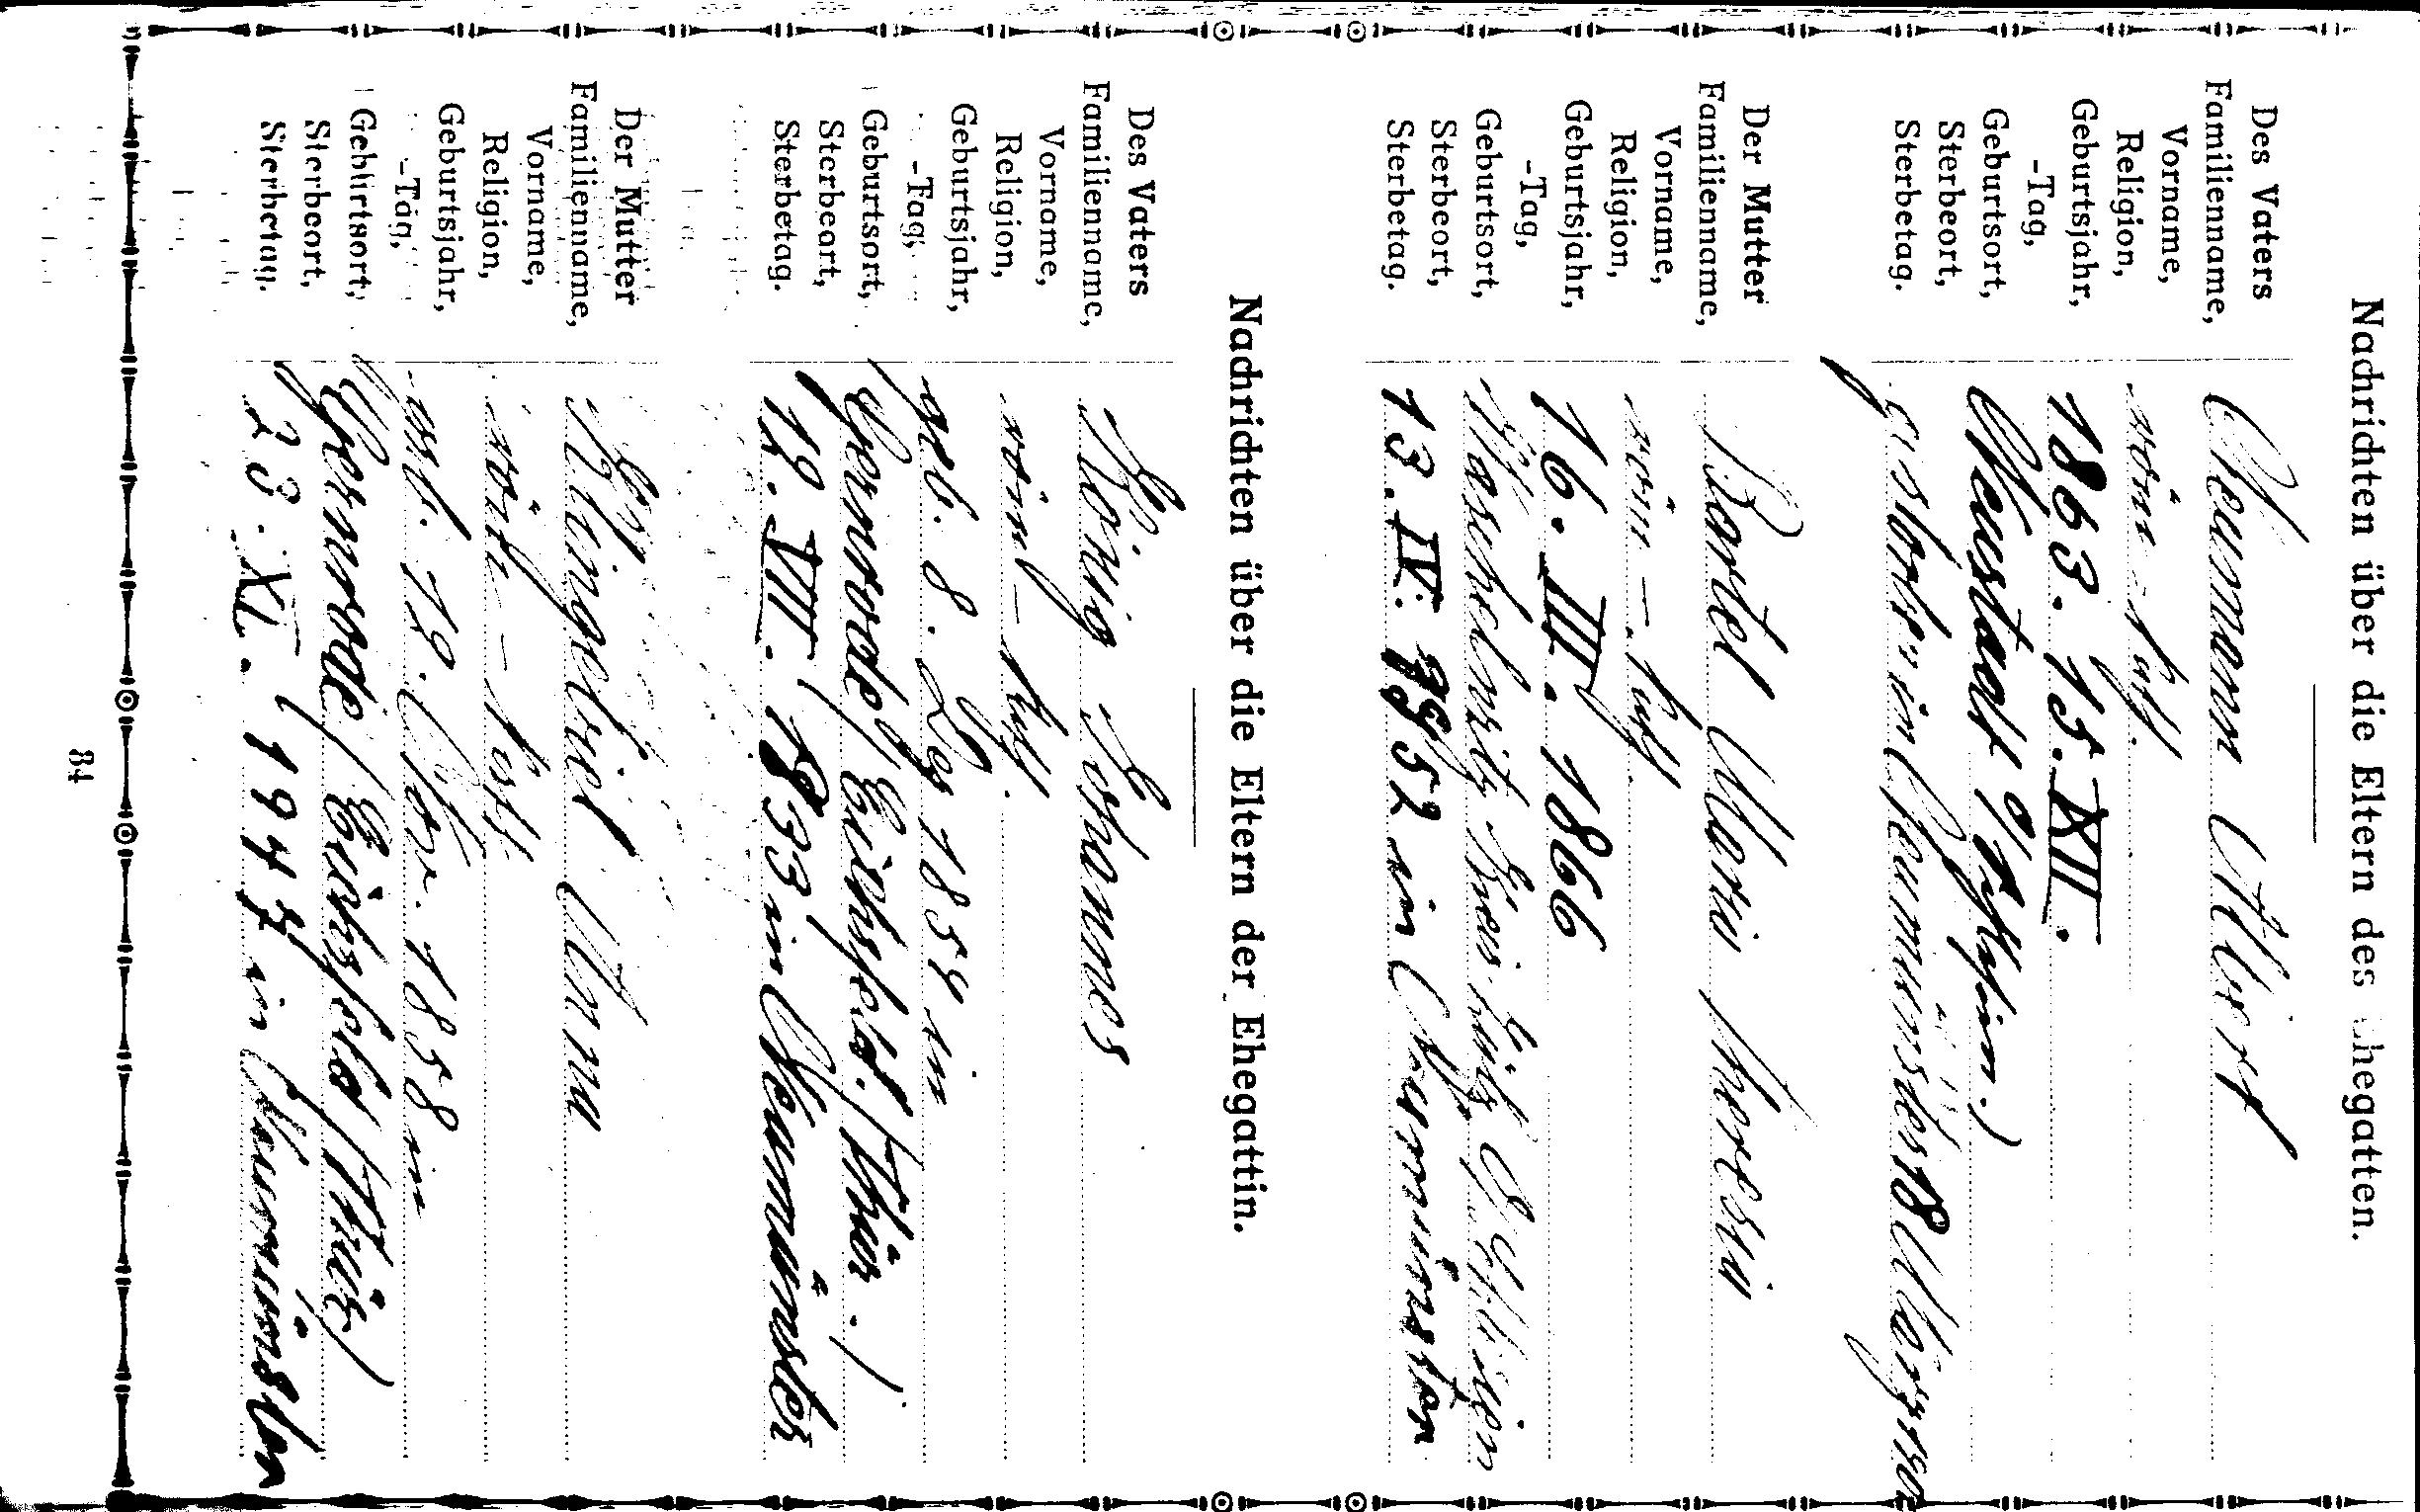 Nachrichten über die Eltern des Ehegatten.
Des Vaters
Familienname,
Vorname,
Religion,
Geburtsjahr,
-Tag,
Geburtsort,
Sterbeort,
Sterbetag.
Neumann Albert
röm.-kath.
1863. 15. XII.
Neustadt
gestorben in Neumünster 18
Der Mutter
Familienname,
Vorname,
Religion,
Geburtsjahr,
-Tag,
Geburtsort,
Sterbeort,
Sterbetag.
Bartel Maria Theresia
röm-kath.
16. III. 1866
Kreis
13. IV. 1952 in Neumünster
Nachrichten über die Eltern der Ehegattin.
Des Vaters
Familienname,
Vorname,
Religion,
Geburtsjahr,
-Tag,
Geburtsort,
Sterbeort,
Sterbetag.
König Johannes
röm-kath.
geb. 8. Dez 1854 in
Gernrode/Eichsfeld. (Thür.)
12. VII. 1933 in Neumünster
Der Mutter
Familienname,
Vorname,
Religion,
Geburtsjahr,
-Tag,
Geburtsort,
Sterbeort,
Sterbetag.
Klingebiel Anna
röm-kath.
geb. 12. 1858 in
Gernrode/Eichsfeld (Thür.)
23. XI. 1947 in Neumünster
34